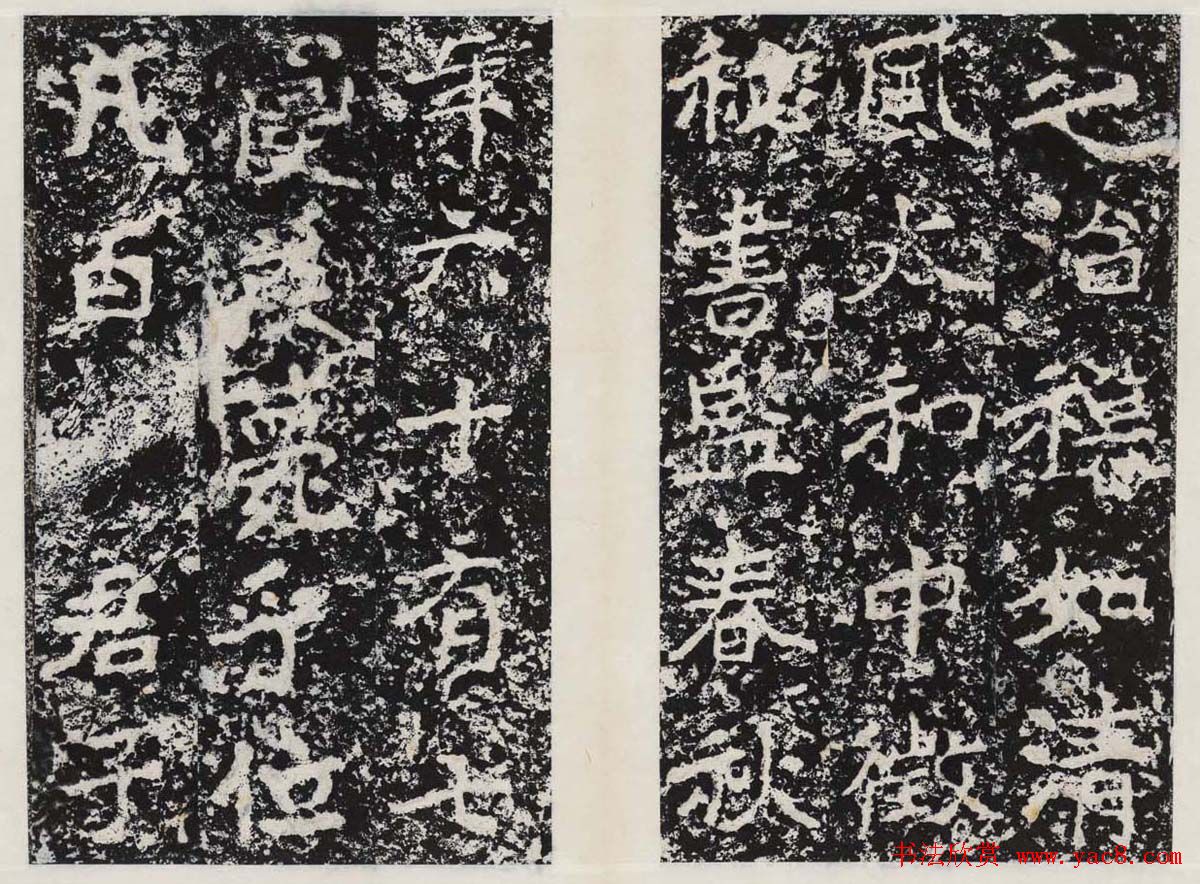 之治穆如清
風大和中徵
秘書監春秋
年六十有七
寑疾薨于位
凡百君子
书法欣赏 www.yac8.com